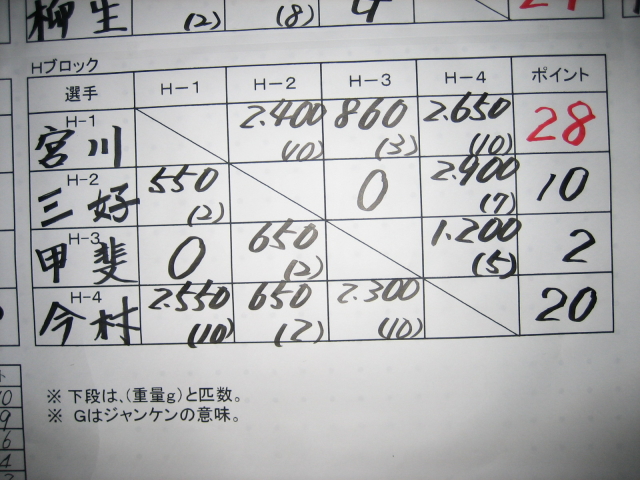 柳生 (2) (8) 4
Hブロック
選手 H-1 H-2 H-3 H-4 ポイント
H-1
宮川 2.400 (10) 860 (3) 2.650 (10) 28
H-2
三好 550 (2) 0 2.900 (7) 10
H-3
甲斐 0 650 (2) 1.200 (5) 2
H-4
今村 2.550 (10) 650 (2) 2.300 (10) 20
※ 下段は、(重量g)と匹数。
※ Gはジャンケンの意味。